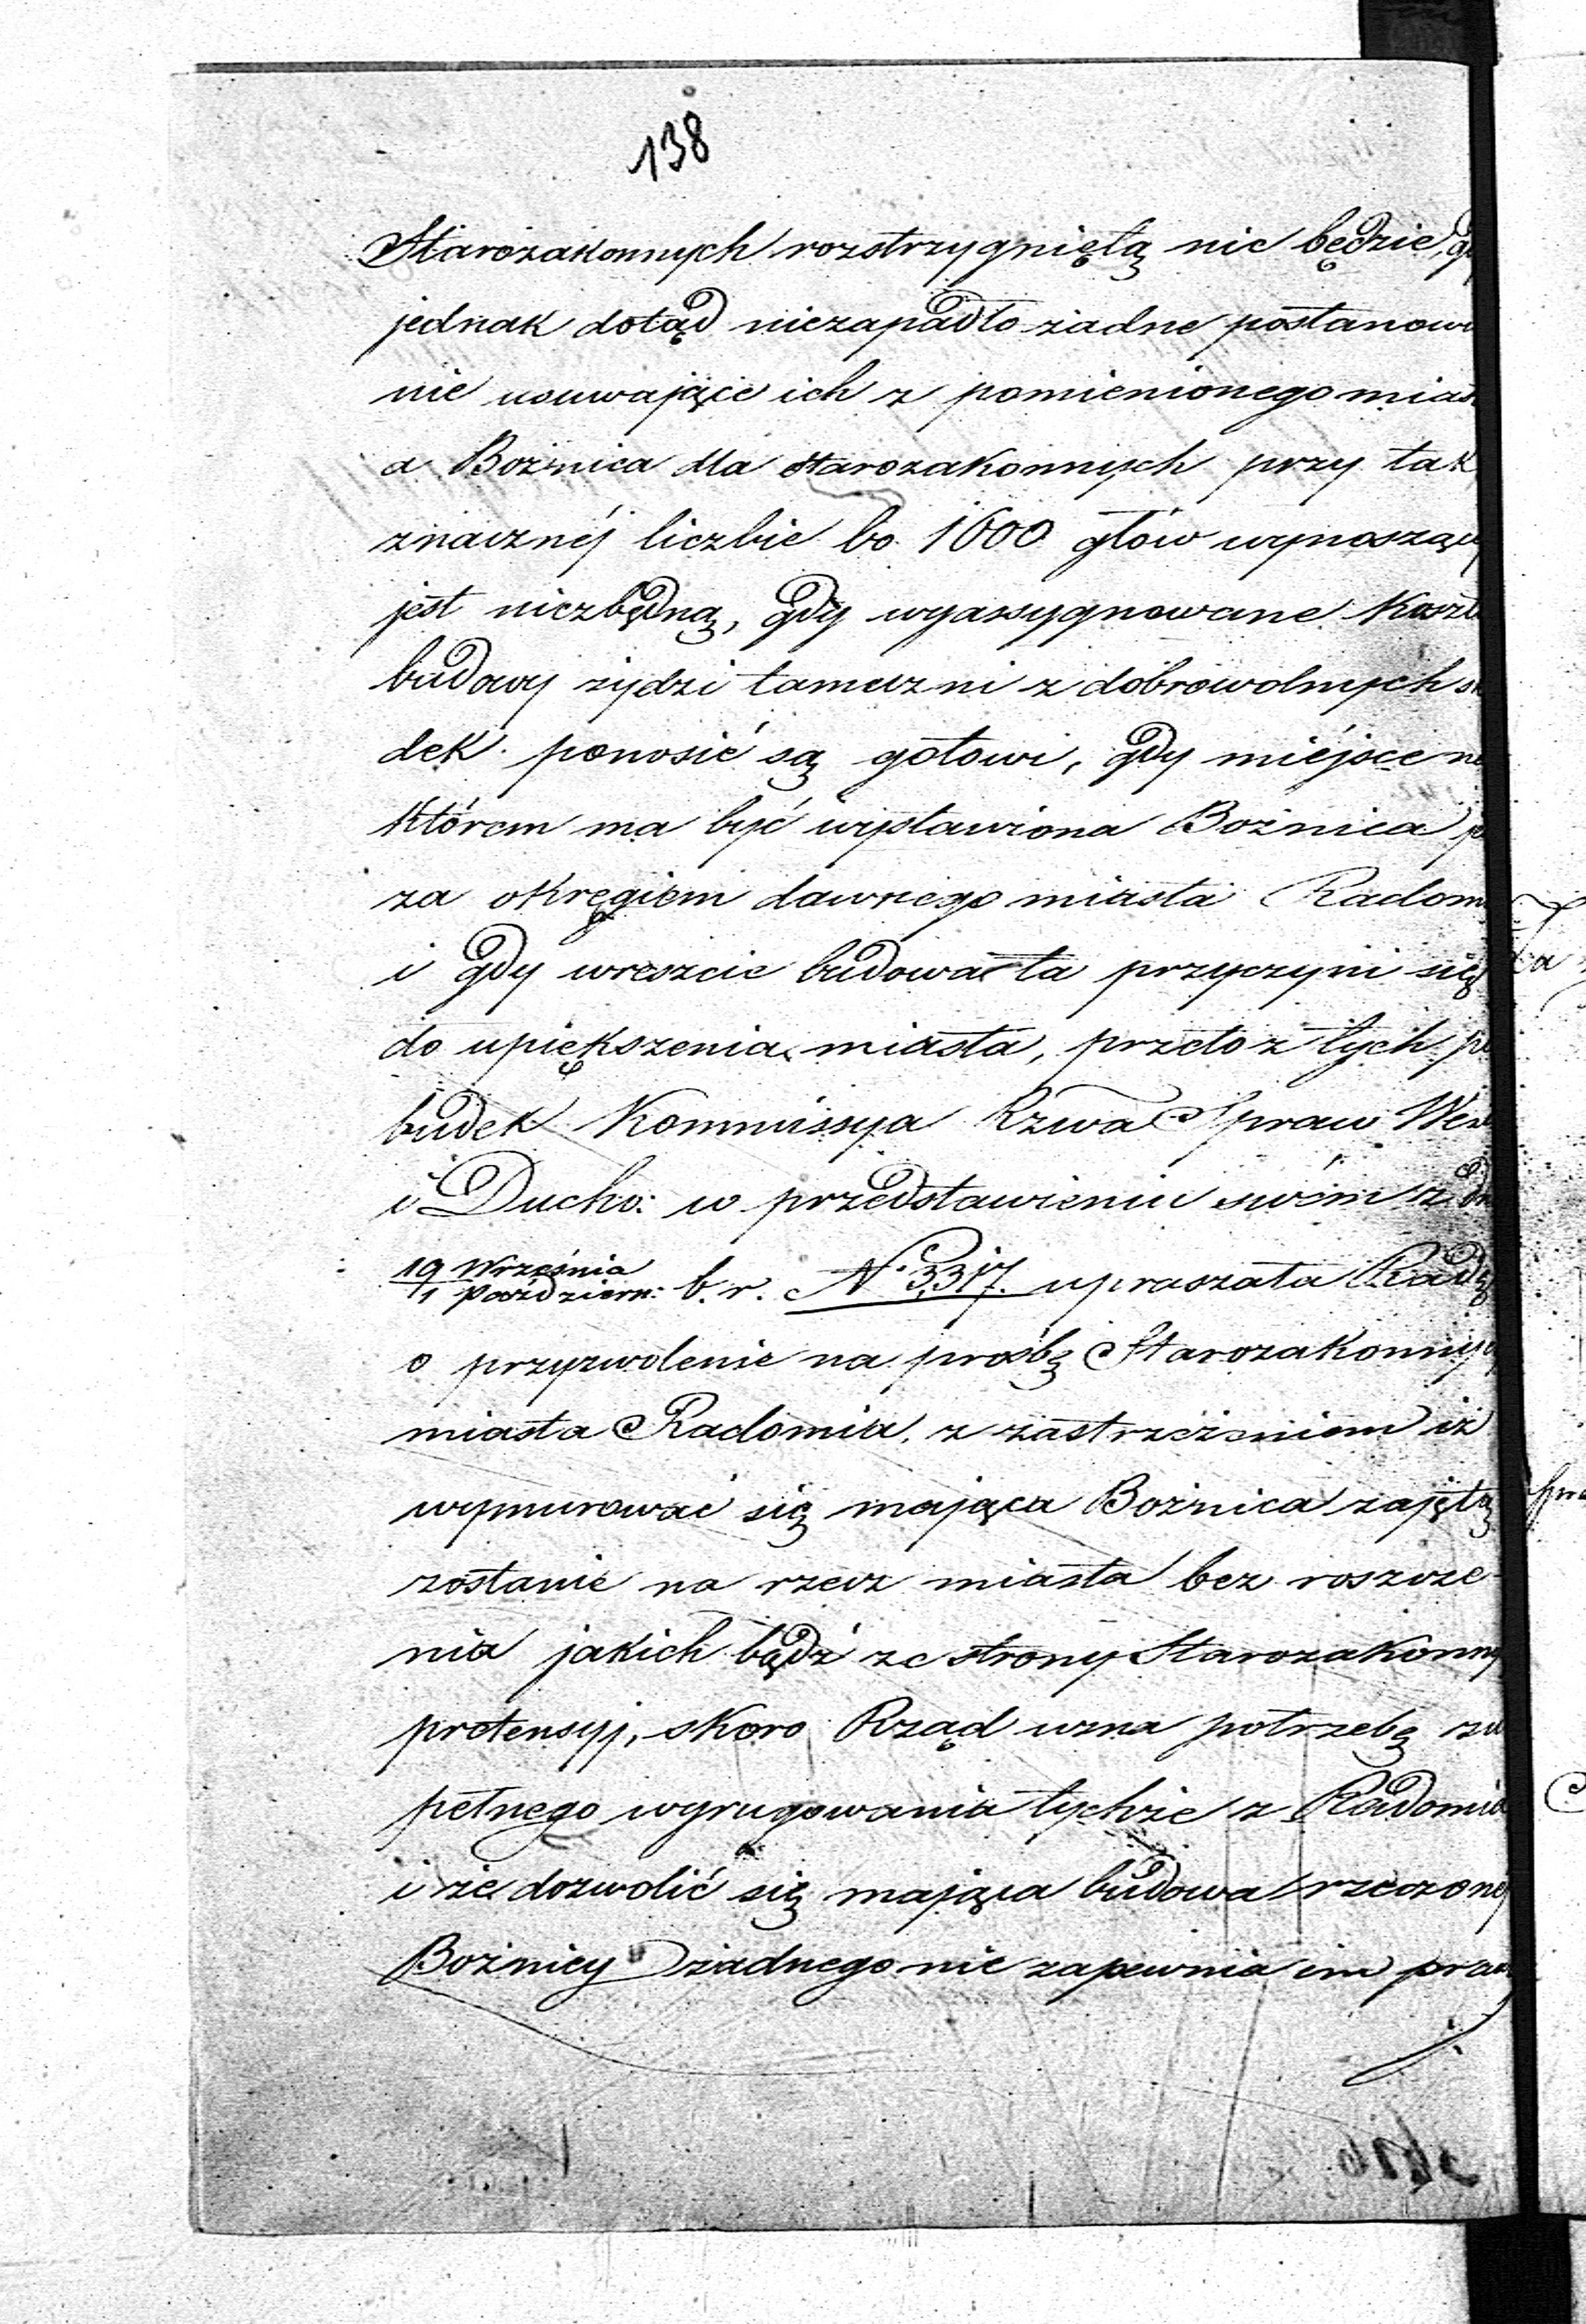 138
Starozakonnych rozstrzygniętą nie będzie, gd
jednak dotąd niezapadło żadne postanowi
nie usuwające ich z pomienionego mias
a Bożnica dla starozakonnych przy tak
znacznéj liczbie bo 1600 głów wynoszący
jest niezbędną, gdy wyassygnowane koszt
budowy żydzi tameczni z dobrowolnych
dek ponosić są gotowi, gdy miéjsce na
którem ma być wystawiona Bożnica
za okręgiem dawnego miasta Radom
i gdy wreszcie budowa ta przyczyni się
do upiększenia miasta, przeto z tych po
budek Kommissya Rzwa Spraw Wew
i Ducho: w przedstawieniu swém z dn
19 Września
1 Październ: b. r. N. 3317. upraszała Radę
o przyzwolenie na prośbę Starozakonnyc
miasta Radomia, z zastrzeżeniem iż
wymurować się mająca Bożnica zajętą
zostanie na rzecz miasta bez roszcze-
nia jakich bądź ze strony Starozakonny
pretensyj, skoro Rząd uzna potrzebę zu
pełnego wyrugowania tychże z Radomia
i że dozwolić się mająca budowa rzeczonéj
Bożnicy żadnego nie zapewnia im praw